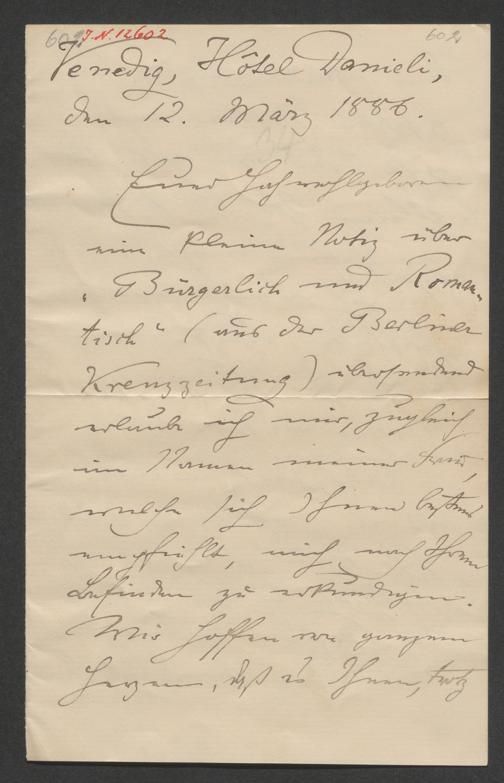 602 J.N. 12602 602
Venedig, Hôtel Danieli,
den 12. März 1886.
Euer Hochwohlgeboren
eine kleine Notiz über
„Bürgerlich und Roman-
tisch“ (aus der Berliner
Kreuzzeitung) übersendend
erlaube ich mir, zugleich
im Namen meiner Frau,
welche sich Ihnen bestens
empfiehlt, mich nach Ihrem
Befinden zu erkundigen.
Wir hoffen von ganzem
Herzen, daß es Ihnen, trotz